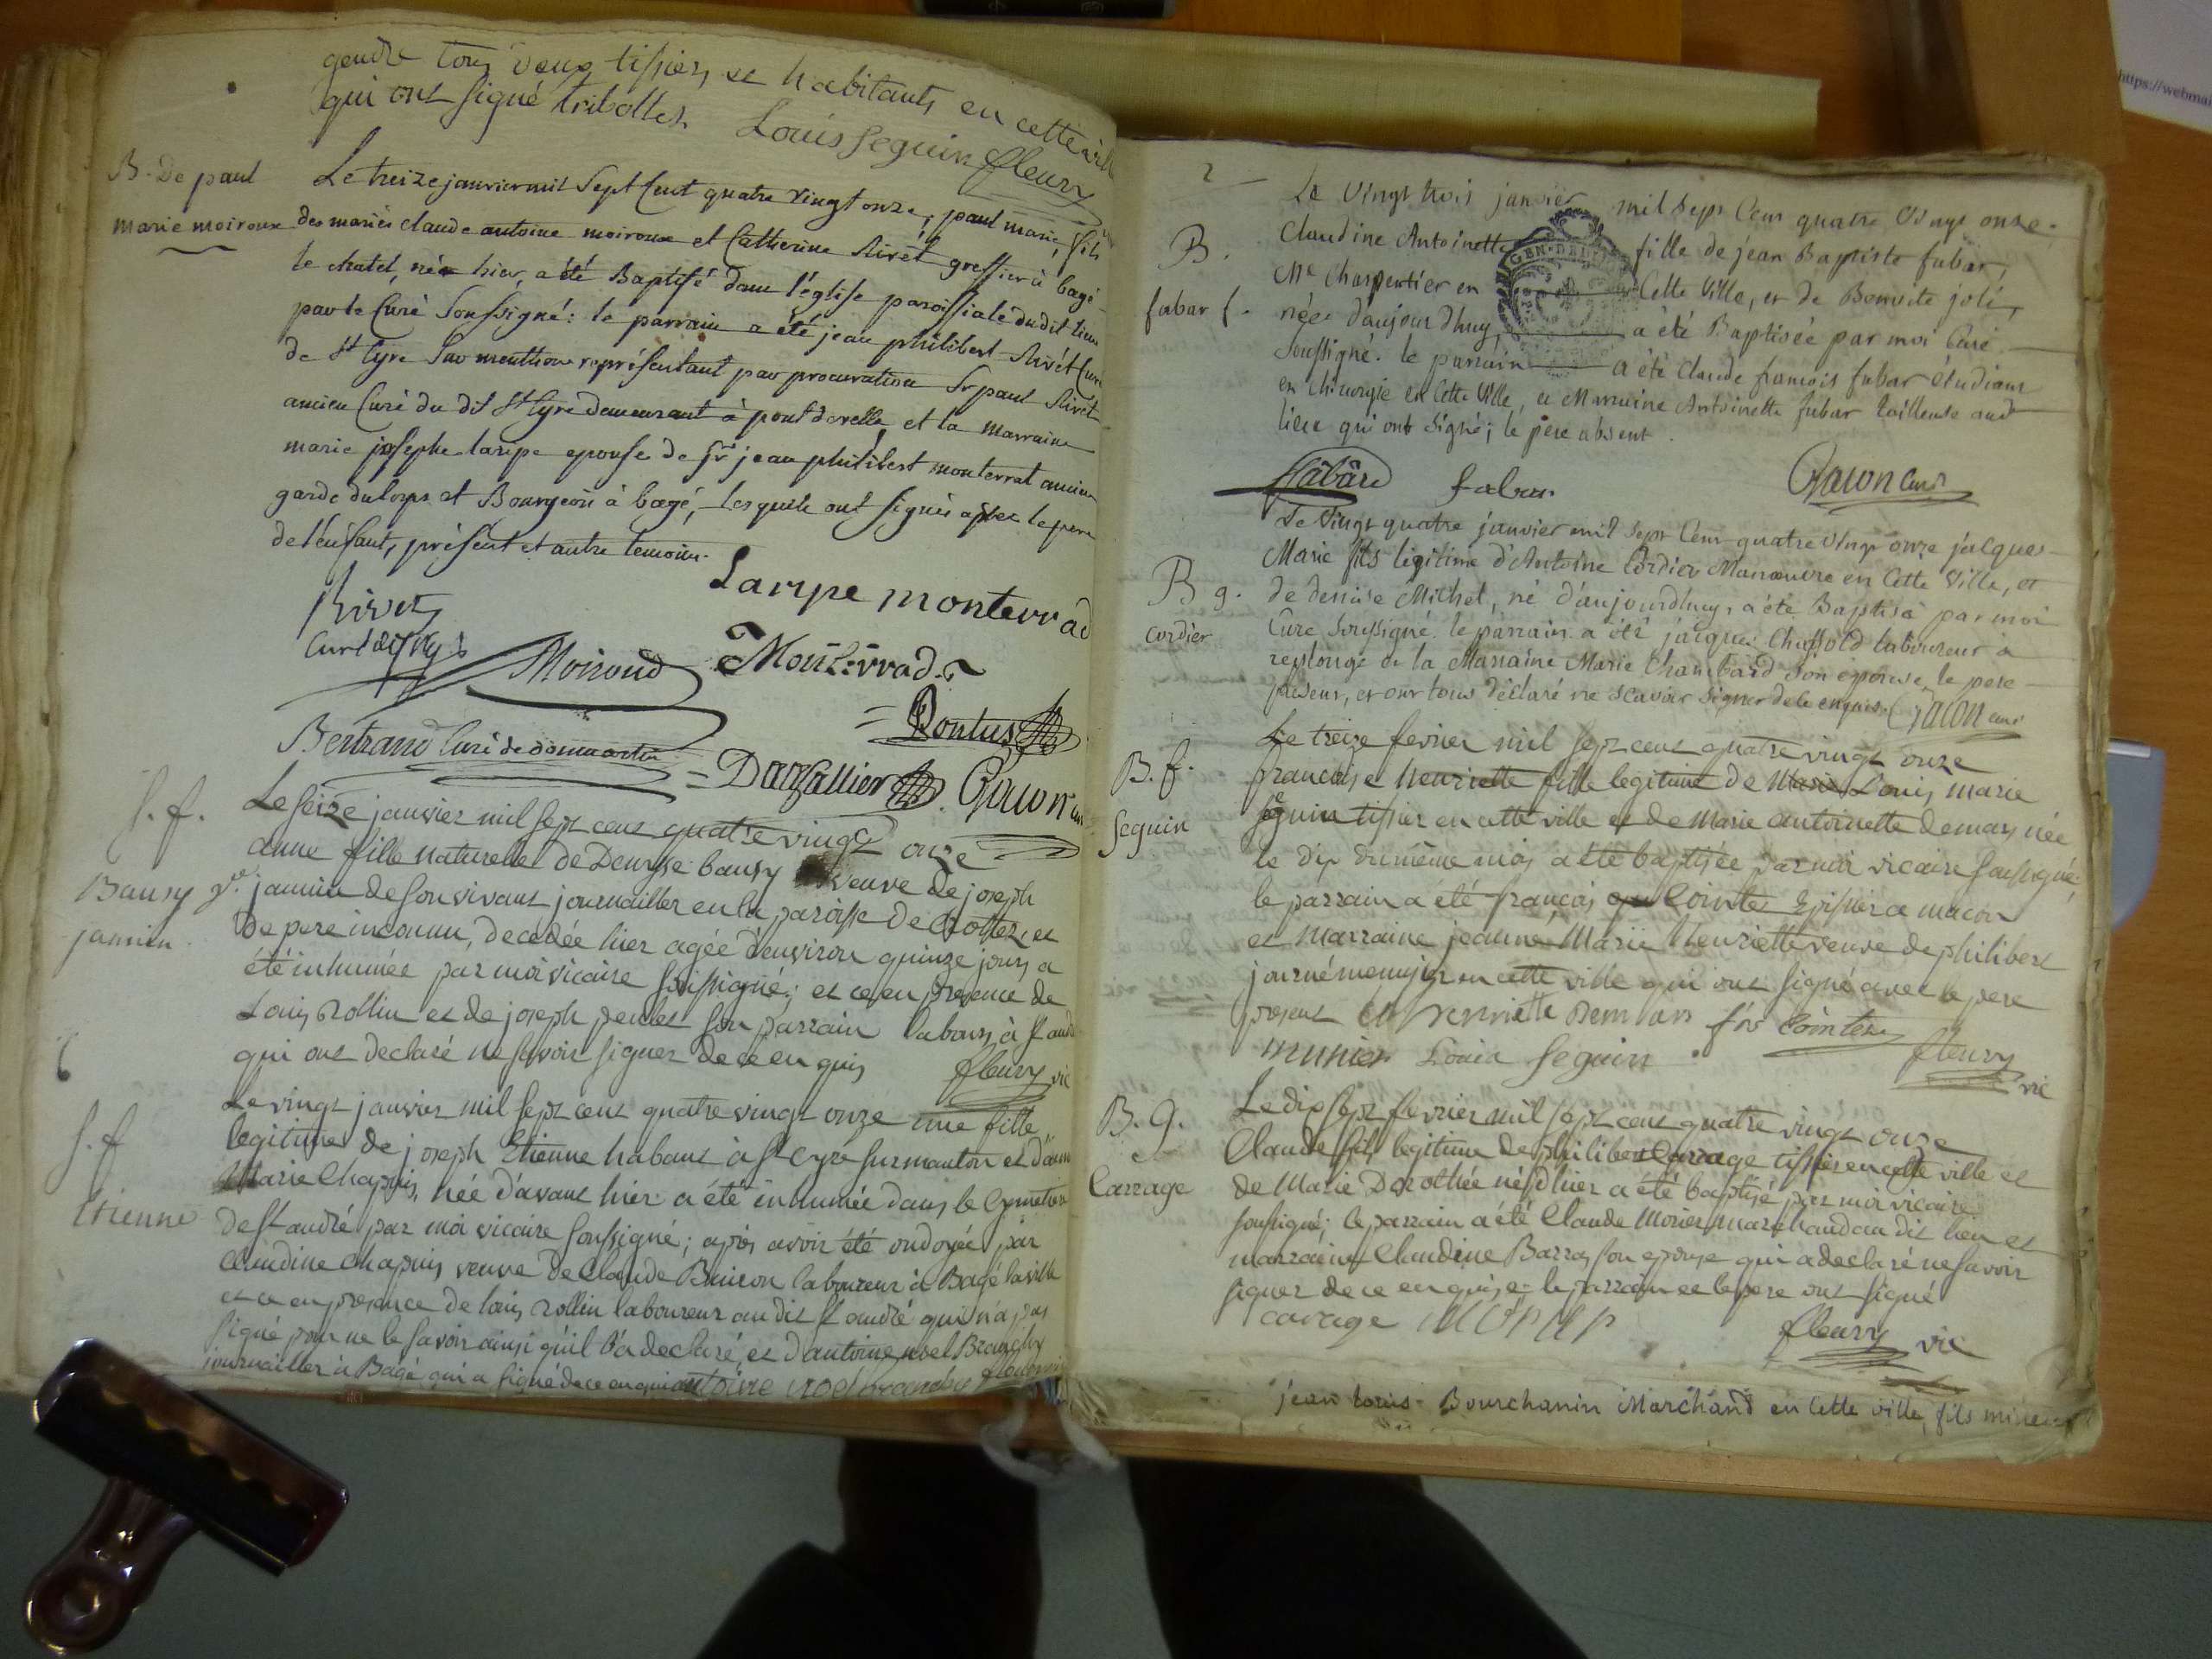 gendre tous deux tissiers et habitants en cette ville
qui ont signé tribollet Louis Seguin fleury
B. De paul
marie moiroux
Le treize janvier mil Sept Cent quatre vingt onze, paul marie, fils
des mariés claude antoine moiroux et Catherine Rivét greffier à bagé
le chatel, né hier, a été Baptisé dans l'église paroissiale du dit lieu
par le Curé Soussigné: le parrain a été jean philibert Rivét Curé
de St Cyre Sur menthon représentant par procuration Sr paul Rivét
ancien Curé du dit St Cyre demeurant à pont de velle, et la marraine
marie josephe laripe epouse de Sr jean philibert monterrat ancien
garde du Corps et Bourgeois à bagé, lesquels ont signés avec le pere
de l'enfant, présent et autre temoins.
Rivet
Curé de St Cyr
Laripe monterrad
Moiroud Monterrad
Pontus
Bertrand Curé de dommartin Dagallier Gacon curé
S. f.
Bausy
jannin
Le seize janvier mil sept cent quatre vingt onze
anne fille naturelle de Denyse bausy veuve de joseph
jannin de son vivant journaillier en la paroisse de Crottet, et
de pere inconnu, decedée hier agée d'environ quinze jours a
été inhumée par moi vicaire soussigné; et ce en presence de
Louis rollin et de joseph perdet son parrain labours à st andré
qui ont declaré ne savoir signer de ce enquis fleury vic
S. f
Etienne
Le vingt janvier mil sept cent quatre vingt onze une fille
legitime de joseph Etienne habant à St Cyre sur manton et d'anne
Marie Chapuis, née d'avant hier a été inhumée dans le Cymetiere
de St andré par moi vicaire soussigné; après avoir été ondoyée par
Claudine Chapuis veuve de Claude Buiron laboureur à Bagé la ville
et ce en presence de louis rollin laboureur au dit St andré qui n'a pas
signé pour ne le savoir ainsi qu'il l'a declaré, et d'antoine noel Branche
journaillier à Bagé qui a signé de ce enquis antoine noel branche fleury vic
2
B.
fabar f.
Le Vingt trois janvier mil Sept Cent quatre Vingt onze.
Claudine Antoinette fille de jean Baptiste fabar,
Me Charpentier en Cette Ville, et de Benoite joli,
GEN. DE L
née d'aujourdhuy, a été Baptisée par moi Curé
Soussigné. le parrain a été Claude francois fabar étudiant
en Chirurgie en Cette Ville, et Marraine Antoinette fabar tailleuse aud
lieu qui ont Signé; le pere absent.
fabare fabar Gacon Curé
B g.
Cordier
Le Vingt quatre janvier mil Sept Cent quatre Vingt onze jacques
Marie fils légitime d'Antoine Cordier Manœuvre en Cette Ville, et
de denise Michel, né d'aujourdhuy, a été Baptisé par moi
Curé Soussigné. le parrain a été jacques Chassold laboureur à
replonge et la Marraine Marie Chambard Son épouse, le pere
présent, et ont tous déclaré ne Scavoir Signer de le enquis. Gacon curé
B. f.
Seguin
Le treize fevrier mil sept cent quatre vingt onze
francoise henriette fille legitime de Louis marie
seguin tissier en cette ville et de Marie antoinette demars née
le dix du même mois a été baptisée par moi vicaire soussigné;
le parrain a été françois Cointet Epissier a macon
et Marraine jeanne Marie henriette veuve de philibert
journé menuisier en cette ville qui ont signé avec le pere
present henriette Demars fis Cointet
munier Louis Seguin fleury vic
B. g.
Carrage
Le dix sept fevrier mil sept cent quatre vingt onze
Claude fils legitime de philibert Carrage tissier en cette ville et
de Marie Dorothée né d'hier a été baptisé par moi vicaire
soussigné; le parrain a été Claude Morier marchand au dit lieu et
marraine Claudine Barras son epouse qui a declaré ne savoir
signer de ce enquise; le parrain et le pere ont signé
carage fleury vic
jean Louis Bourchanin Marchand en Cette ville, fils mineur
https://webmai